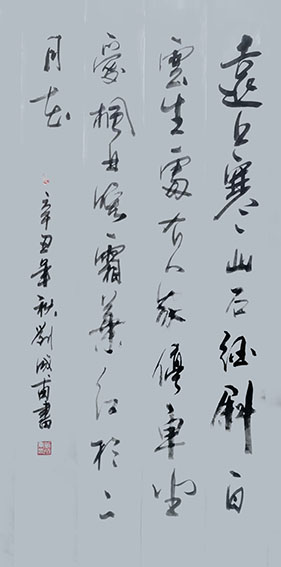 遠上寒山石徑斜白
雲生處有人家停車坐
愛楓林晚霜葉紅於二
月花
辛丑年秋劉甫書